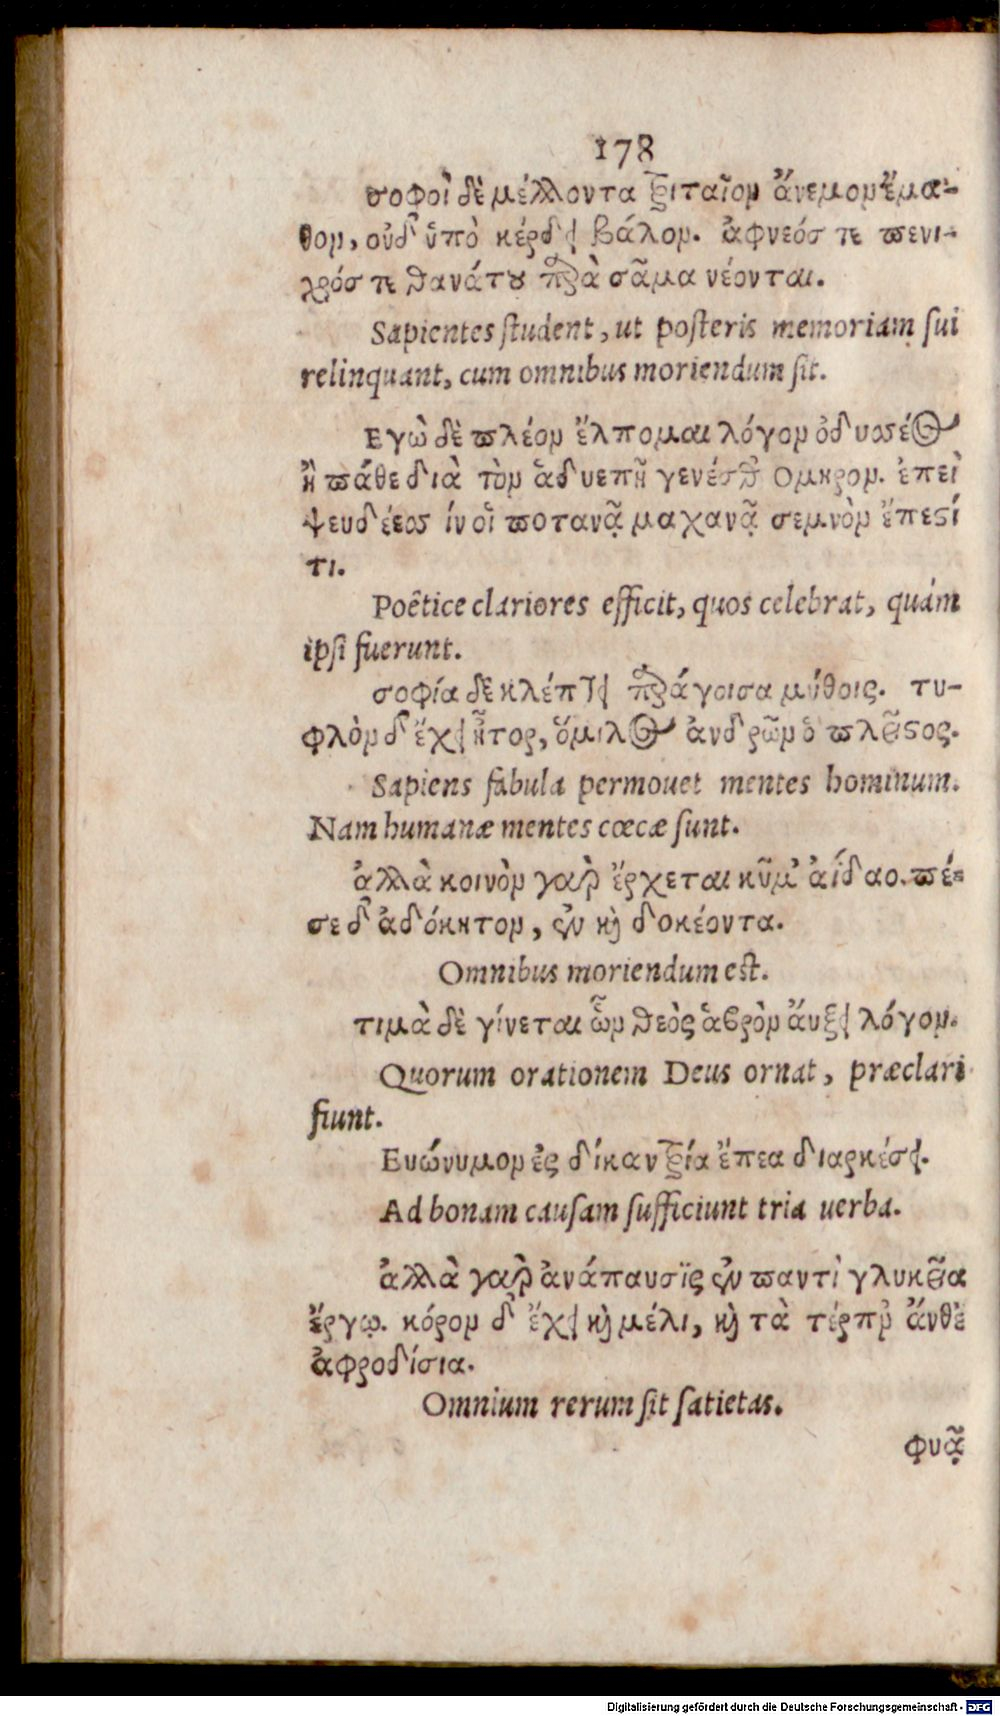 178
σοφοὶ δὲ μέλλοντα τριταῖον ἄνεμον ἔμα-
θον, οὐδ' ὑπὸ κέρδει βάλον. ἀφνεός τε πενι-
χρός τε θανάτου παρὰ σᾶμα νέονται.
Sapientes student, ut posteris memoriam sui
relinquant, cum omnibus moriendum sit.
Εγὼ δὲ πλέον ἔλπομαι λόγον ὀδυσσέος
ἢ πάθε διὰ τὸν ἁδυεπῆ γενέσθ Ομηρον. ἐπεὶ
ψευδέεσσ ἱν οἱ ποτανᾷ μαχανᾷ σεμνὸν ἔπεστί
τι.
Poêtice clariores efficit, quos celebrat, quám
ipsi fuerunt.
σοφία δὲ κλέπτει παράγοισα μύθοις. τυ-
φλὸν δ' ἔχει ἦτορ, ὅμιλος ἀνδρῶν ὁ πλεῖστος.
Sapiens fabula permouet mentes hominum.
Nam humanæ mentes cœcæ sunt.
ἀλλὰ κοινὸν γαρ ἔρχεται κῦμ' ἀίδαο. πέ=
σε δ' ἀδόκητον, ἐν καὶ δοκέοντα.
Omnibus moriendum est.
τιμὰ δὲ γίνεται ὧν θεὸς ἁβρὸν ἄυξει λόγον.
Quorum orationem Deus ornat, præclari
fiunt.
Ευώνυμον ἐς δίκαν τρία ἔπεα διαρκέσει.
Ad bonam causam sufficiunt tria uerba.
ἀλλὰ γαρ ἀνάπαυσϊς ἐν παντὶ γλυκεῖα
ἔργῳ. κόρον δ' ἔχει καὶ μέλι, καὶ τὰ τέρπν' ἄνθὲ
ἀφροδίσια.
Omnium rerum fit satietas.
φυᾷ
Digitalisierung gefördert durch die Deutsche Forschungsgemeinschaft - DFG